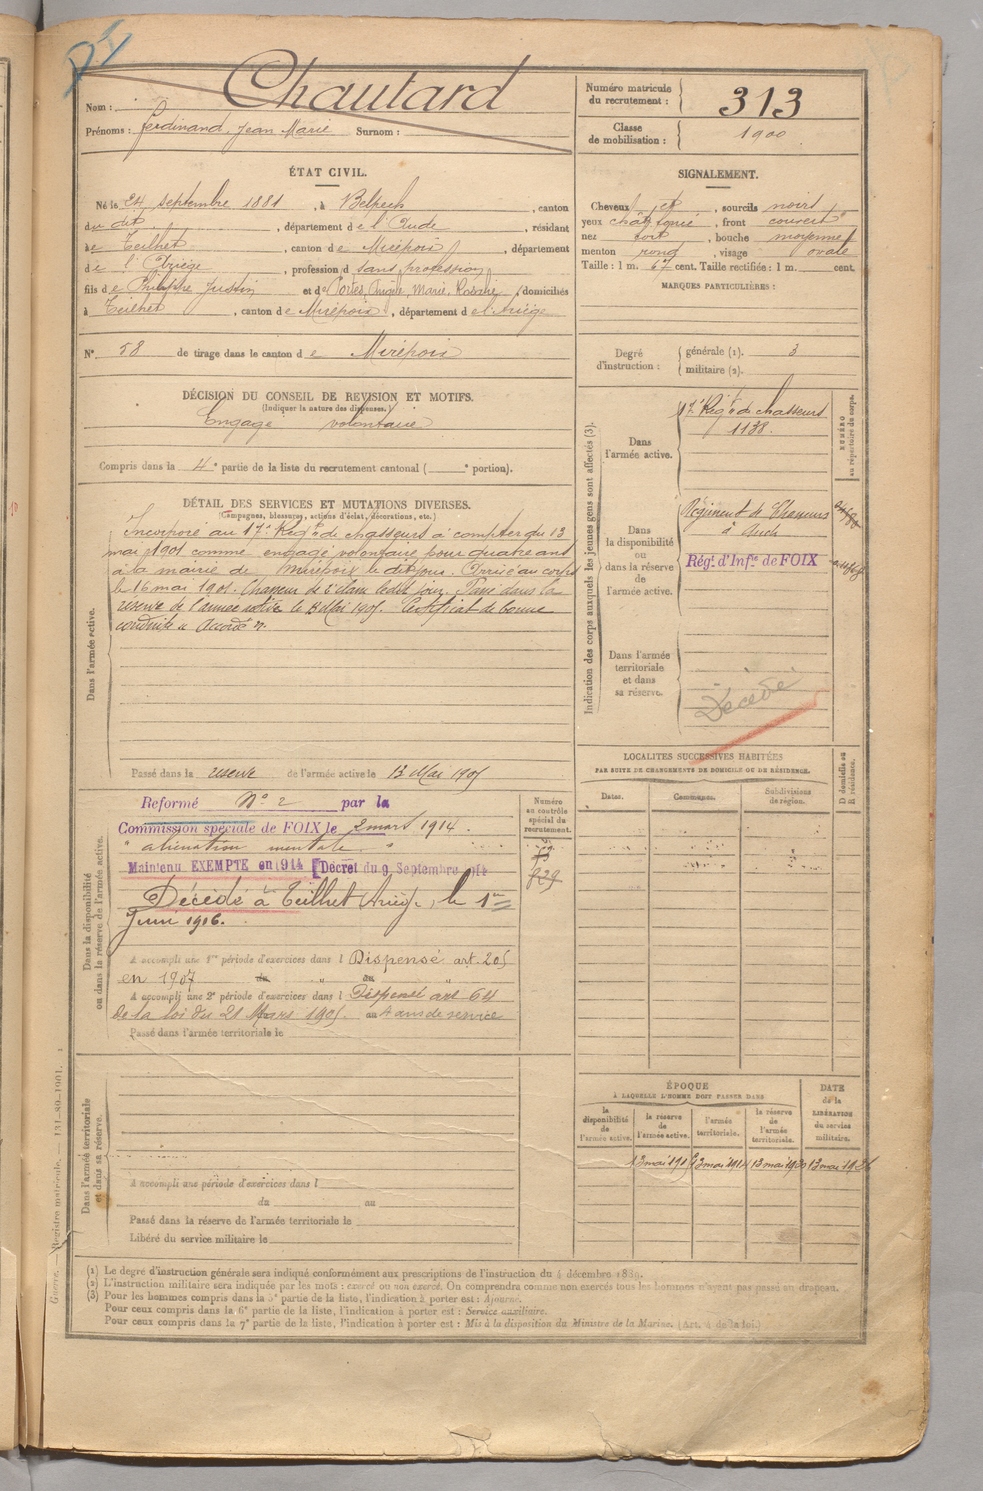 Nom : Chautard
Prénoms : Ferdinand Jean Marie Surnom :
Numéro matricule du recrutement : 313
Classe de mobilisation : 1900
ÉTAT CIVIL.
Né le 24 septembre 1881, à Belpech, canton
du dit, département de l'Aude, résidant
à Teilhet, canton de Mirepois, département
de l'Ariège, profession d sans profession
fils de Philippe Justin et de Portes, Marie, domiciliés
à Teilhet, canton de Mirepois, département de l'Ariège
N° 58 de tirage dans le canton de Mirepois
SIGNALEMENT.
Cheveux et, sourcils noirs
yeux, front couvert
nez fort, bouche moyenne
menton rond, visage ovale
Taille : 1 m. 67 cent. Taille rectifiée : 1 m. cent.
MARQUES PARTICULIÈRES :
Degré d'instruction : générale (1). 3
militaire (2).
DÉCISION DU CONSEIL DE REVISION ET MOTIFS.
(Indiquer la nature des dispenses.)
Engagé volontaire
Compris dans la 4e partie de la liste du recrutement cantonal ( e portion).
DÉTAIL DES SERVICES ET MUTATIONS DIVERSES.
(Campagnes, blessures, actions d'éclat, décorations, etc.)
Dans l'armée active.
Incorporé au 17e Régt de chasseurs à compter du 13
mai 1901 comme engagé volontaire pour quatre ans
à la mairie de Mirepoix le dit jour. Arrivé au corps
le 16 mai 1901. Chasseur de 2e classe ledit jour. Passé dans la
réserve de l'armée active le 13 Mai 1905. Certificat de bonne
conduite "Accordé".
Passé dans la réserve de l'armée active le 13 Mai 1905
Indication des corps auxquels les jeunes gens sont affectés (3).
NUMÉRO au répertoire du corps.
Dans l'armée active.
17e Régt de chasseurs
1138.
Dans la disponibilité ou dans la réserve de l'armée active.
Régiment de Chasseurs
à Auch
Régt d'Infie de FOIX
Dans l'armée territoriale et dans sa réserve.
Décédé
Dans la disponibilité ou dans la réserve de l'armée active.
Reformé N° 2 par la
Commission spéciale de FOIX le 2 mars 1914.
" aliénation mentale "
Maintenu EXEMPTE en 1914 [Décret du 9 Septembre 1914
Décédé à Teilhet Arièg., le 1er
Juin 1916.
A accompli une 1re période d'exercices dans l Dispensé art. 205
en 1907 du " au "
A accompli une 2e période d'exercices dans l Dispensé art 64
de la loi du 21 Mars 1905. au 4 ans de service
Passé dans l'armée territoriale le
Numéro au contrôle spécial du recrutement.
829
LOCALITÉS SUCCESSIVES HABITÉES
PAR SUITE DE CHANGEMENTS DE DOMICILE OU DE RÉSIDENCE.
Dates. Communes. Subdivisions de région. D domicile ou R résidence.
Dans l'armée territoriale et dans sa réserve.
A accompli une période d'exercices dans l
du au
Passé dans la réserve de l'armée territoriale le
Libéré du service militaire le
ÉPOQUE
À LAQUELLE L'HOMME DOIT PASSER DANS
la disponibilité de l'armée active. la réserve de l'armée active. l'armée territoriale. la réserve de l'armée territoriale.
DATE de la LIBÉRATION du service militaire.
13 mai 1905 13 mai 1914 13 mai 1920 13 mai 1926
(1) Le degré d'instruction générale sera indiqué conformément aux prescriptions de l'instruction du 4 décembre 1889.
(2) L'instruction militaire sera indiquée par les mots : exercé ou non exercé. On comprendra comme non exercés tous les hommes n'ayant pas passé au drapeau.
(3) Pour les hommes compris dans la 5e partie de la liste, l'indication à porter est : Ajourné.
Pour ceux compris dans la 6e partie de la liste, l'indication à porter est : Service auxiliaire.
Pour ceux compris dans la 7e partie de la liste, l'indication à porter est : Mis à la disposition du Ministre de la Marine. (Art. 4 de la loi.)
Guerre. — Registre matricule. — 131-89-1901.